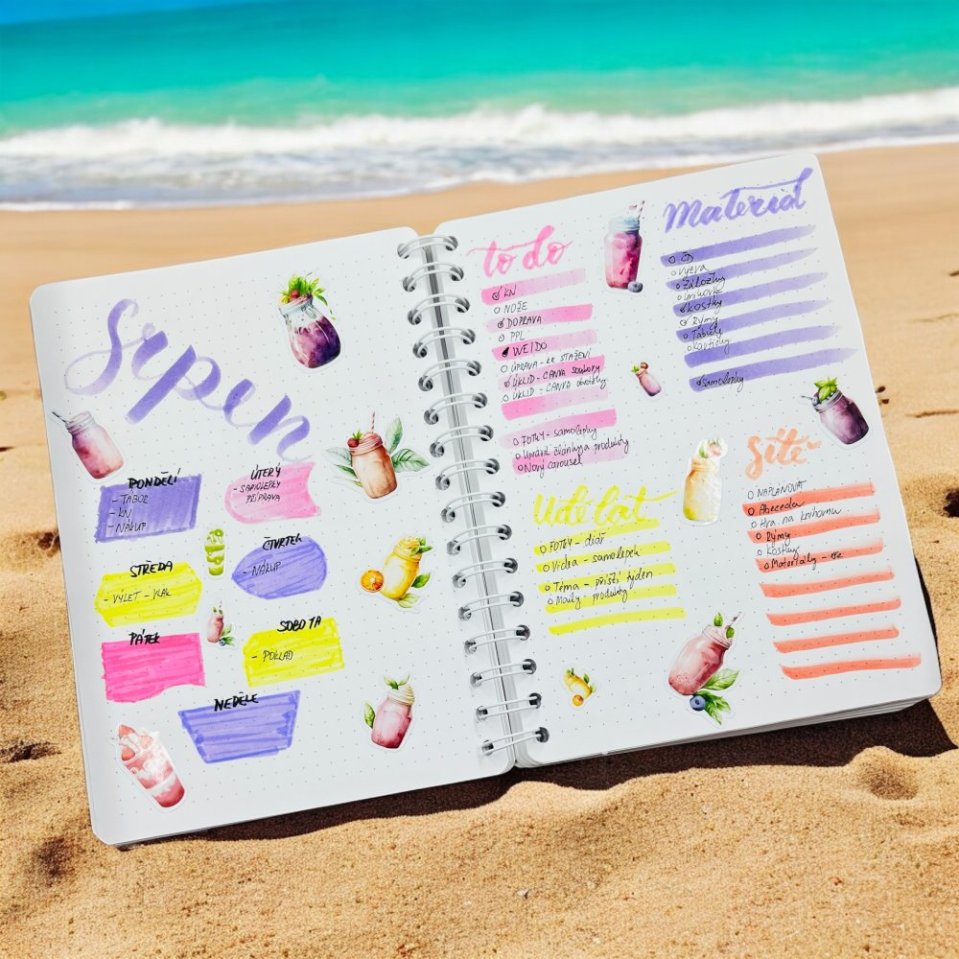 Srpen
PONDĚLÍ
- TÁBOR
- KN
- NÁKUP
ÚTERÝ
- SAMOLEPKY
PŘÍPRAVA
STŘEDA
- VÝLET - VLAK
ČTVRTEK
- NÁKUP
PÁTEK
SOBOTA
- POKLAD
NEDĚLE
to do
KN
NOŽE
DOPRAVA
PPL
WEIDO
ÚPRAVA - KE STAŽENÍ
ÚKLID - CANVA soubory
ÚKLID - CANVA obrázky
FOTKY - samolepky
Upravit články a produkty
Nový carousel
Udělat
FOTKY - diář
Videa - samolepek
Téma - příští týden
Mauly - produkty
Material
Výzva
Záložky
Kostky
Rýmy
Tabulky
Kartičky
Samolepky
Sítě
NAPLÁNOVAT
Abeceda
Hra na knihovnu
Rýmy
Kostky
Materiály -